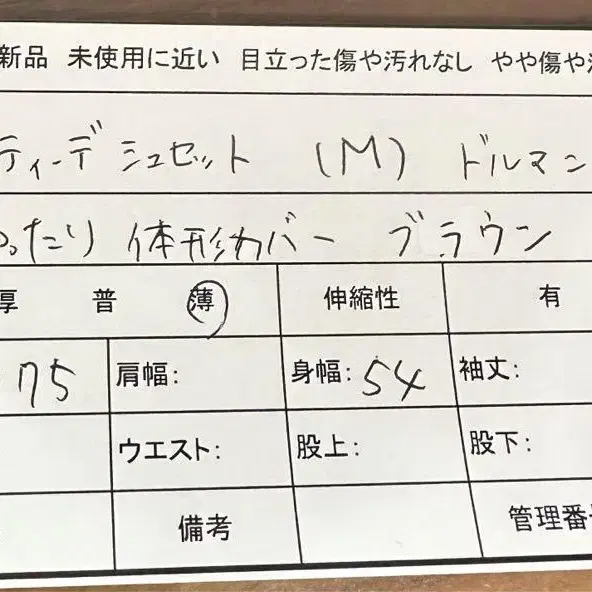 新品 未使用に近い 目立った傷や汚れなし やや傷や
ティーデシュセット (M) ドルマン
ったり 体形カバー ブラウン
厚 普 薄 伸縮性 有
75 肩幅: 身幅: 54 袖丈:
ウエスト: 股上: 股下:
備考 管理番